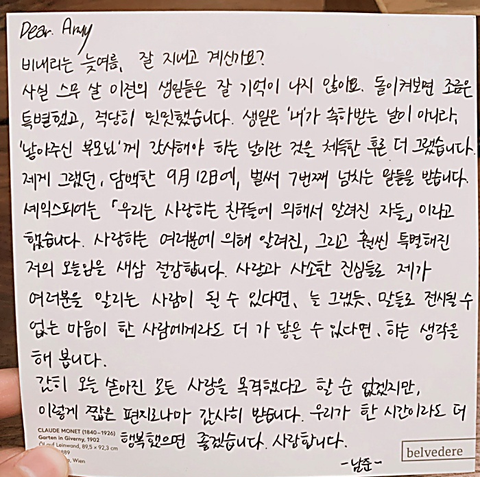 Dear. Army
비내리는 늦여름, 잘 지내고 계신가요?
사실 스무 살 이전의 생일들은 잘 기억이 나지 않아요. 돌이켜보면 조금은
특별했고, 적당히 밋밋했습니다. 생일은 '내'가 축하받는 날이 아니라,
'낳아주신 부모님'께 감사해야 하는 날이란 것을 체득한 후론 더 그랬습니다.
제게 그랬던, 담백한 9월 12일에, 벌써 7번째 넘치는 말들을 받습니다.
셰익스피어는 「우리는 사랑하는 친구들에 의해서 알려진 자들」이라고
했습니다. 사랑하는 여러분에 의해 알려진, 그리고 훨씬 특별해진
저의 오늘임을 새삼 절감합니다. 사랑과 사소한 진심들로 제가
여러분을 알리는 사람이 될 수 있다면, 늘 그랬듯, 말들로 전시될 수
없는 마음이 한 사람에게라도 더 가 닿을 수 있다면, 하는 생각을
해 봅니다.
감히 오늘 쏟아진 모든 사랑을 목격했다고 할 순 없겠지만,
이렇게 짧은 편지로나마 감사히 받습니다. 우리가 한 시간이라도 더
행복했으면 좋겠습니다. 사랑합니다.
-남준-
CLAUDE MONET (1840–1926)
Garten in Giverny, 1902
Öl auf Leinwand, 89,5 x 92,3 cm
Wien
belvedere